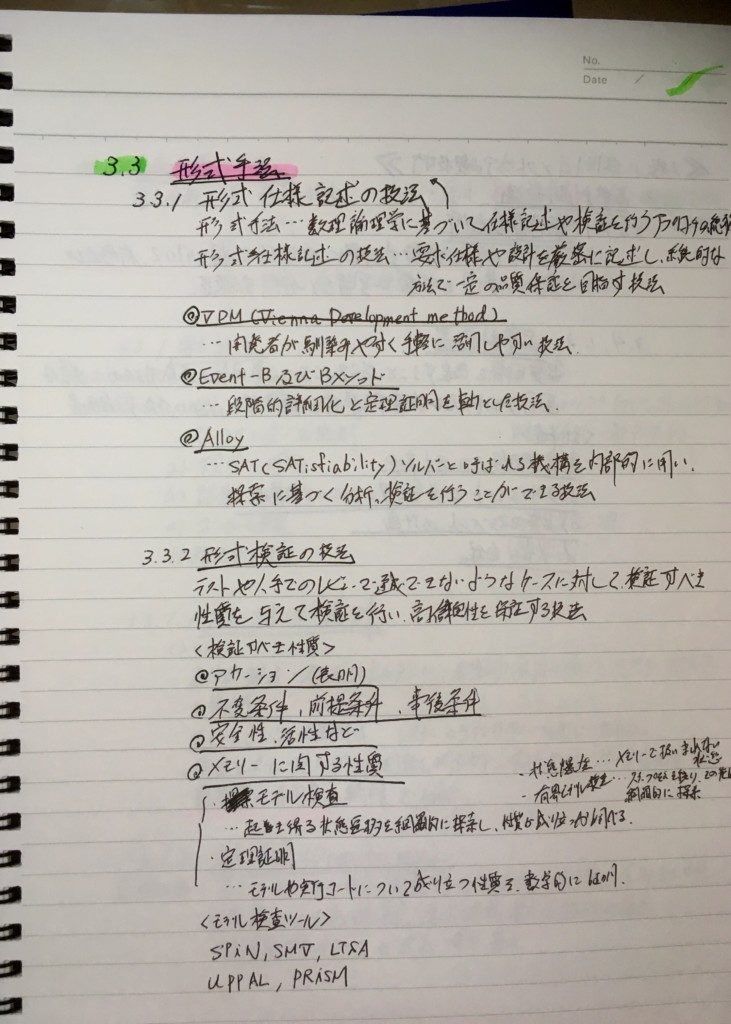 No.
Date /
3.3 形式手法
3.3.1 形式仕様記述の技法
形式手法…数理論理学に基づいて仕様記述や検証を行う
形式手仕様記述の技法…要求仕様や設計を厳密に記述し、系統的な
方法で一定の品質保証を目指す技法
@VDM(Vienna Development method)
…開発者が馴染みやすく手軽に活用しやすい技法.
@Event-B及びBメソッド
…段階的詳細化と定理証明を軸とした技法.
@Alloy
…SAT(SATisfiability)ソルバーと呼ばれる機構を内部的に用い,
探索に基づく分析、検証を行うことができる技法
3.3.2 形式検証の技法
テストや人手でのレビューで できないようなケースに対して、検証すべき
性質を与えて検証を行い、高信頼性を保証する技法
<検証すべき性質>
@アサーション(表明)
@不変条件、前提条件、事後条件
@安全性、活性など
@メモリーに関する性質
- 状態爆発…メモリーで扱いきれない
状態
- 有界モデル検査…
網羅的に探索
・モデル検査
…起こり得る状態遷移を網羅的に探索し、性質が成り立つか調べる.
・定理証明
…モデルや実行コードについて成り立つ性質を、数学的に証明.
<モデル検査ツール>
SPiN, SMV, LTSA
UPPAL, PRiSM